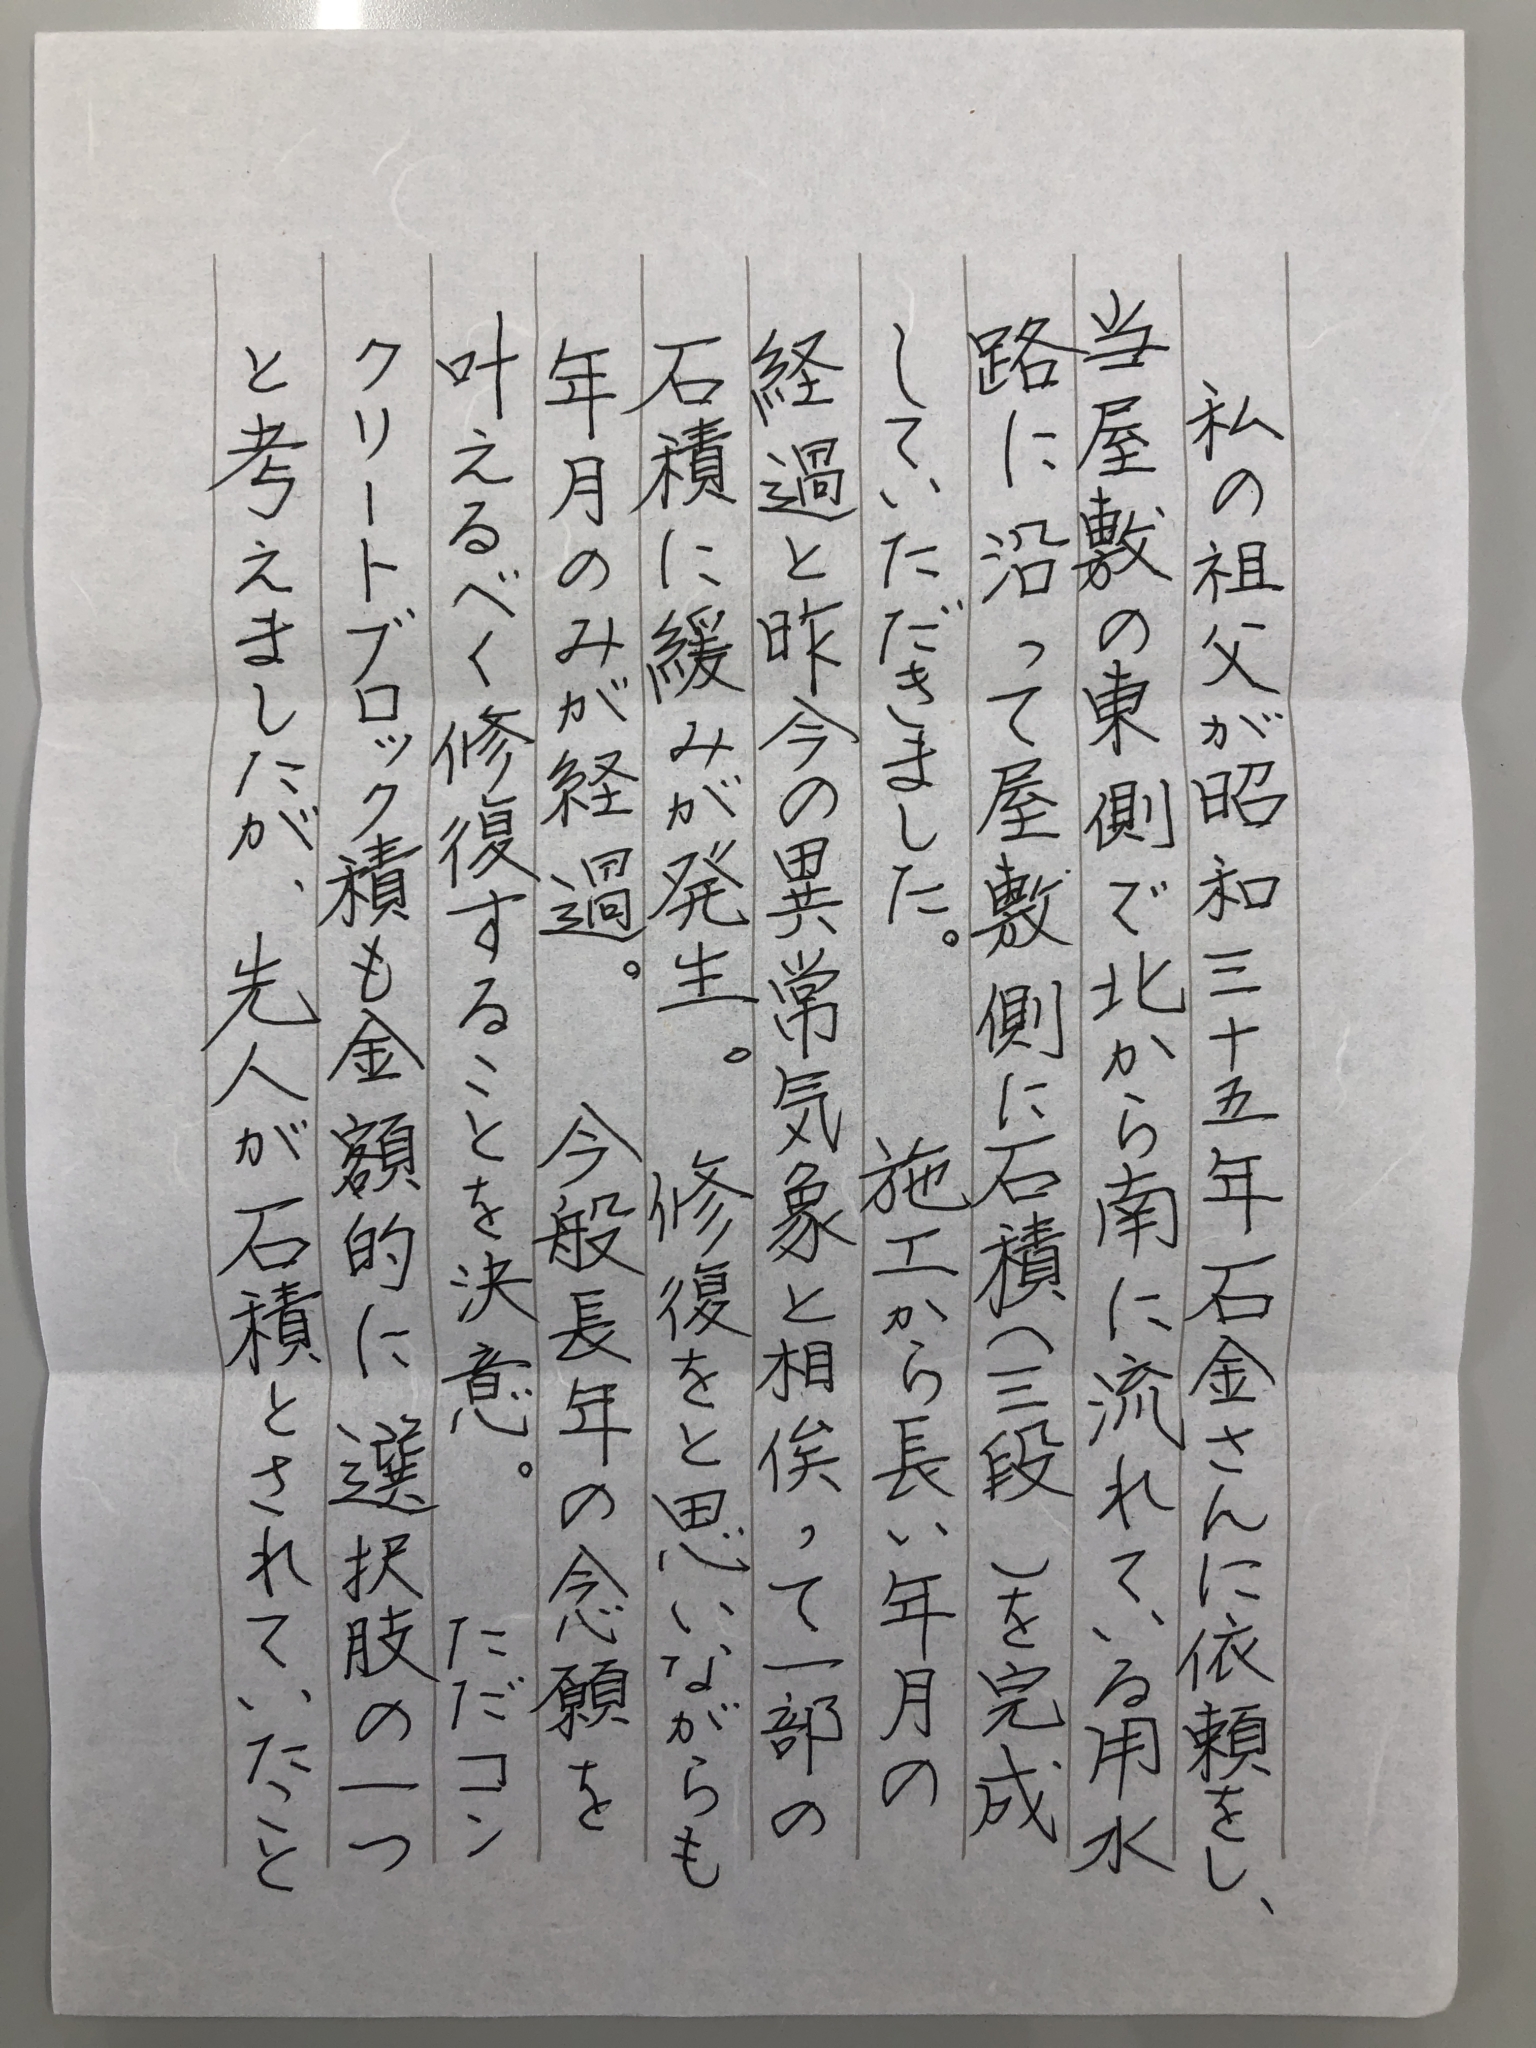 私の祖父が昭和三十五年石金さんに依頼をし、
当屋敷の東側で北から南に流れている用水
路に沿って屋敷側に石積(三段)を完成
していただきました。　施工から長い年月の
経過と昨今の異常気象と相俟って一部の
石積に緩みが発生。　修復をと思いながらも
年月のみが経過。　今般長年の念願を
叶えるべく修復することを決意。　ただコン
クリートブロック積も金額的に選択肢の一つ
と考えましたが、先人が石積とされていたこと